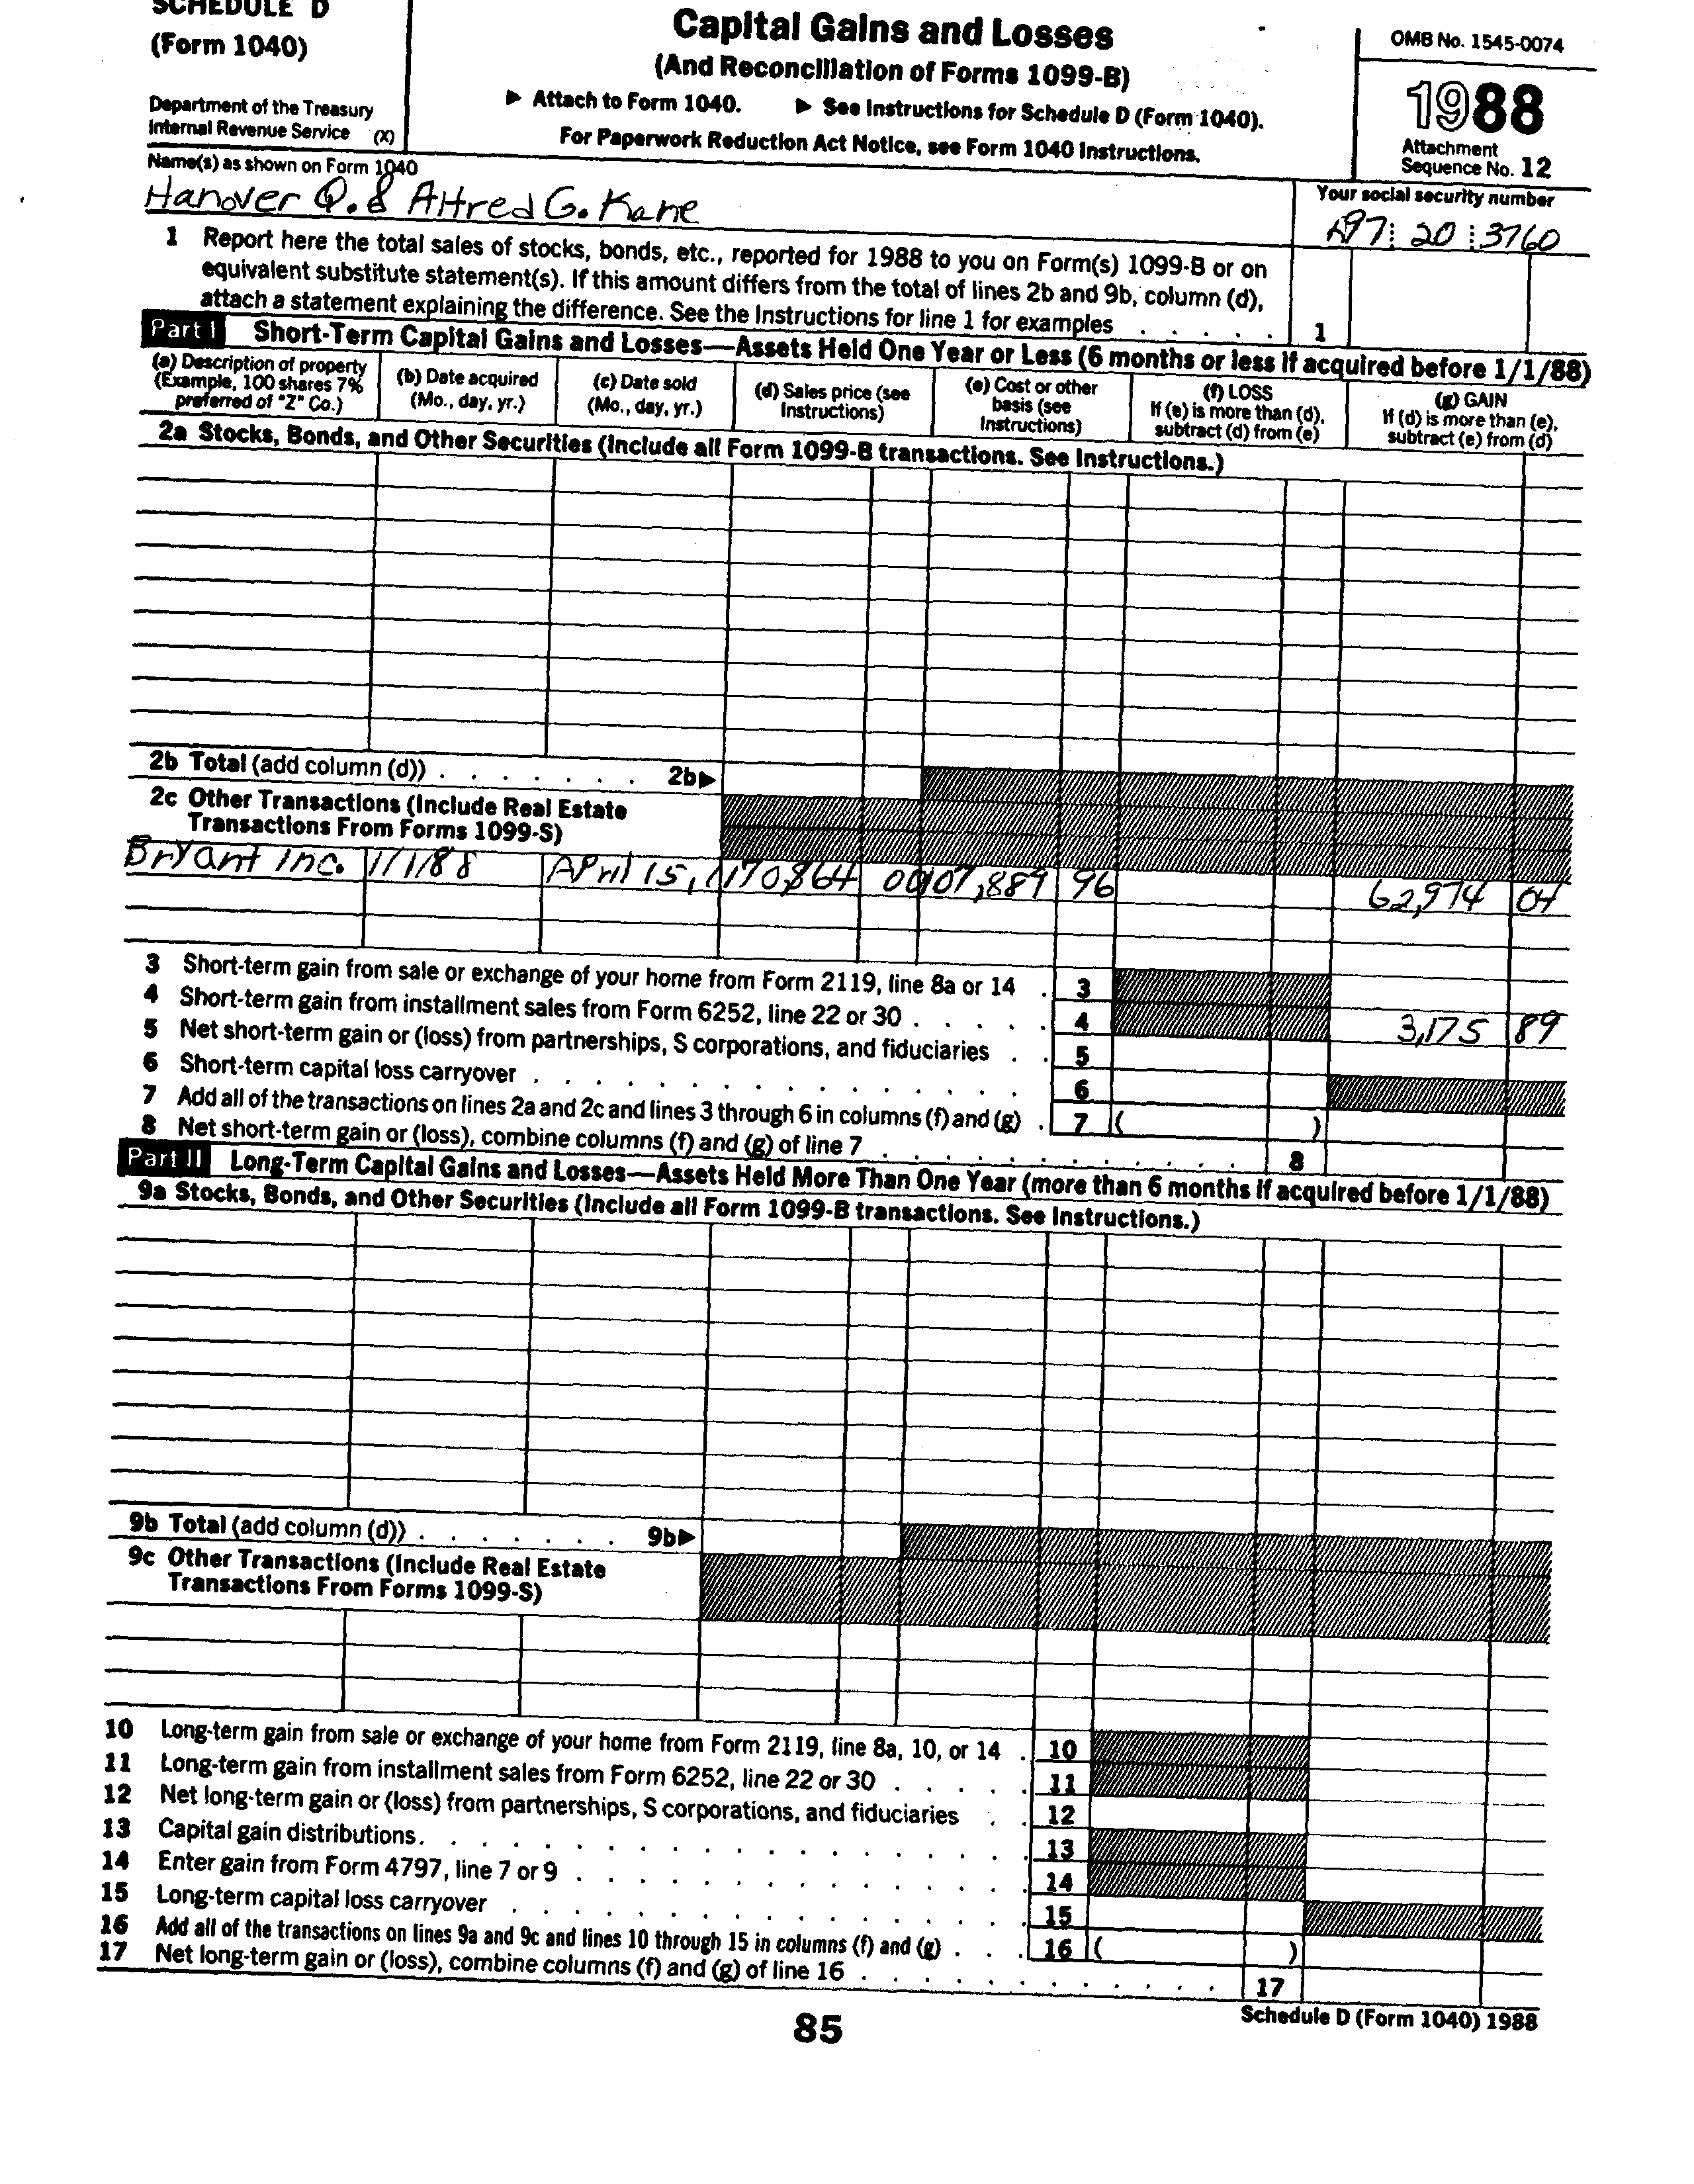 SCHEDULE D
(Form 1040)
Department of the Treasury
Internal Revenue Service (X)
Capital Gains and Losses
(And Reconciliation of Forms 1099-B)
▶ Attach to Form 1040. ▶ See Instructions for Schedule D (Form 1040).
For Paperwork Reduction Act Notice, see Form 1040 Instructions.
OMB No. 1545-0074
1988
Attachment
Sequence No. 12
Name(s) as shown on Form 1040
Hanover Q. & Alfred G. Kane
Your social security number
20 3760
1 Report here the total sales of stocks, bonds, etc., reported for 1988 to you on Form(s) 1099-B or on
equivalent substitute statement(s). If this amount differs from the total of lines 2b and 9b, column (d),
attach a statement explaining the difference. See the Instructions for line 1 for examples . . . . . 1
Part I Short-Term Capital Gains and Losses—Assets Held One Year or Less (6 months or less if acquired before 1/1/88)
(a) Description of property
(Example, 100 shares 7%
preferred of "Z" Co.)
(b) Date acquired
(Mo., day, yr.)
(c) Date sold
(Mo., day, yr.)
(d) Sales price (see
Instructions)
(e) Cost or other
basis (see
Instructions)
(f) LOSS
If (e) is more than (d),
subtract (d) from (e)
(g) GAIN
If (d) is more than (e),
subtract (e) from (d)
2a Stocks, Bonds, and Other Securities (Include all Form 1099-B transactions. See Instructions.)
2b Total (add column (d)) . . . . . . . 2b▶
2c Other Transactions (Include Real Estate
Transactions From Forms 1099-S)
Bryant Inc. 1/1/88 April 15, 170,864 00 107,889 96 62,974 04
3 Short-term gain from sale or exchange of your home from Form 2119, line 8a or 14 . 3
4 Short-term gain from installment sales from Form 6252, line 22 or 30 . . . . . 4 3,175 89
5 Net short-term gain or (loss) from partnerships, S corporations, and fiduciaries . . 5
6 Short-term capital loss carryover . . . . . . . . . . . . . . . . 6
7 Add all of the transactions on lines 2a and 2c and lines 3 through 6 in columns (f) and (g) . 7 ( )
8 Net short-term gain or (loss), combine columns (f) and (g) of line 7 . . . . . . . . . . . 8
Part II Long-Term Capital Gains and Losses—Assets Held More Than One Year (more than 6 months if acquired before 1/1/88)
9a Stocks, Bonds, and Other Securities (Include all Form 1099-B transactions. See Instructions.)
9b Total (add column (d)) . . . . . . . 9b▶
9c Other Transactions (Include Real Estate
Transactions From Forms 1099-S)
10 Long-term gain from sale or exchange of your home from Form 2119, line 8a, 10, or 14 . 10
11 Long-term gain from installment sales from Form 6252, line 22 or 30 . . . . . 11
12 Net long-term gain or (loss) from partnerships, S corporations, and fiduciaries . . 12
13 Capital gain distributions. . . . . . . . . . . . . . . . . . . 13
14 Enter gain from Form 4797, line 7 or 9 . . . . . . . . . . . . . . 14
15 Long-term capital loss carryover . . . . . . . . . . . . . . . . 15
16 Add all of the transactions on lines 9a and 9c and lines 10 through 15 in columns (f) and (g) . . . 16 ( )
17 Net long-term gain or (loss), combine columns (f) and (g) of line 16 . . . . . . . . . . . . 17
Schedule D (Form 1040) 1988
85